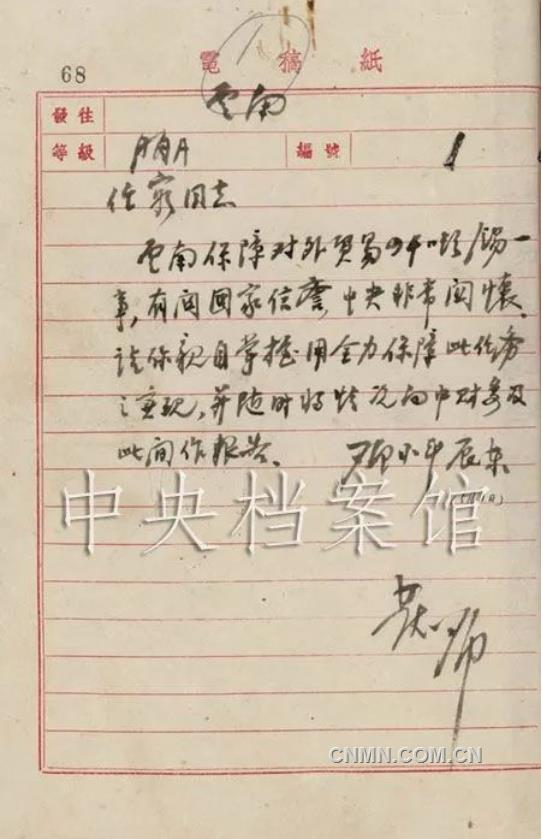 1
68
電稿紙
發往 云南
等級 AAAA 編號 1
任穷同志
云南保障对外贸易四千吨锡一
事，有関国家信誉，中央非常関懷，
請你親自掌握用全力保障此任务
之实现，并随时将情况向中财委及
此间作报告。 邓小平 辰东
(5月1日)
中央档案馆
CNMN.COM.CN